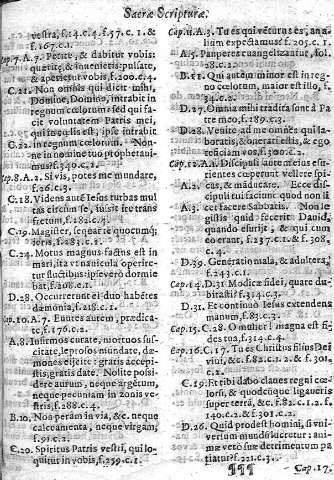 Sacræ Scripturæ.
vestra, f.14.c.4. f.37. c. 1. &
f.167.c.1.
Cap.7. A.7. Petite, & dabitur vobis:
quærite, & invenietis: pulsate,
& aperietur vobis, f.200.c.4.
C.21. Non omnis qui dicit mihi,
Domine, Domine, intrabit in
regnum cœlorum: sed qui fa-
cit voluntatem Patris mei,
qui in cœlis est, ipse intrabit
C.22. in regnum cœlorum. Non-
ne in nomine tuo prophetavi-
mus? f.240.c.1.
Cap.8. A.2. Si vis, potes me mundare,
f.26.c.3.
C.18. Videns autē Iesus turbas mul
tas circum se, jussit ire trans
fretum, f.218.c.4.
C.19. Magister, sequar te quocumq;
ieris, f.281.c.1.
C.24. Motus magnus factus est in
mari, ita ut navicula operire-
tur fluctibus: ipse verò dormie
bat, f.208.c.1.
D.28. Occurrerunt ei duo habētes
dæmonia, f.218.c.1.
Cap.10. A.7. Euntes autem, prædica-
te, f.176.c.2.
A.8. Infirmos curate, mortuos sus-
citate, leprosos mundate, dæ-
mones eijcite: gratis accepi-
stis, gratis date. Nolite possi-
dere aurum, neque argētum,
neque pecuniam in zonis ve-
stris, f.288.c.4.
B.10. Non peram in via, &c. neque
calceamenta, neque virgam,
f.91.c.2.
C.20. Spiritus Patris vestri, qui lo-
quitur in vobis, f.239.c.1.
Cap.11. A.3. Tu es qui vēturus es, an a-
lium expectamus? f.205.c.1.
A.5. Pauperes evangelizantur, fol.
28.c.2.
B.11. Qui autem minor est in reg-
no cœlorum, maior est illo, f.
34.c.2.
D.27. Omnia mihi tradita sūt à Pa-
tre meo, f.289.c.3.
D.28. Venite ad me omnes qui la-
boratis, & onerati estis, & ego
reficiam vos, f.300.c.2.
Cap.12. A.1. Discipuli autem eius esu-
rientes cœperunt vellere spi-
A.2. cas, & māducare. Ecce disci-
puli tui faciunt quod non li
A.3. cet facere Sabbatis. Non le-
gistis quid fecerit David,
quando esurijt, & qui cum
eo erant, f.237.c.1. & f.308.
c.4.
D.39. Generatio mala, & adultera,
f.243.c.1.
Cap.14. D.31. Modicæ fidei, quare du-
bitasti? f.314.c.3.
D.31. Et continuò Iesus extendens
manum, f.83.c.3.
Cap.15. C.28. O mulier! magna est fi-
des tua, f.314.c.4.
Cap.16. C.17. Tu es Christus filius Dei
vivi, &c. f.82.c.1.2. & f.301.
c.2.
C.19. Et tibi dabo claves regni cæ-
lorū, & quodcūque ligaveris
super terrā, &c. f.82.c.1.2. f.
140.c.2. & f.301.c.2.
D.26. Quid prodest homini, si uni-
versum mundū lucretur: ani-
mæ verò suæ detrimentum pa
tiatur? f.221.c.3.
¶¶¶ Cap.17.